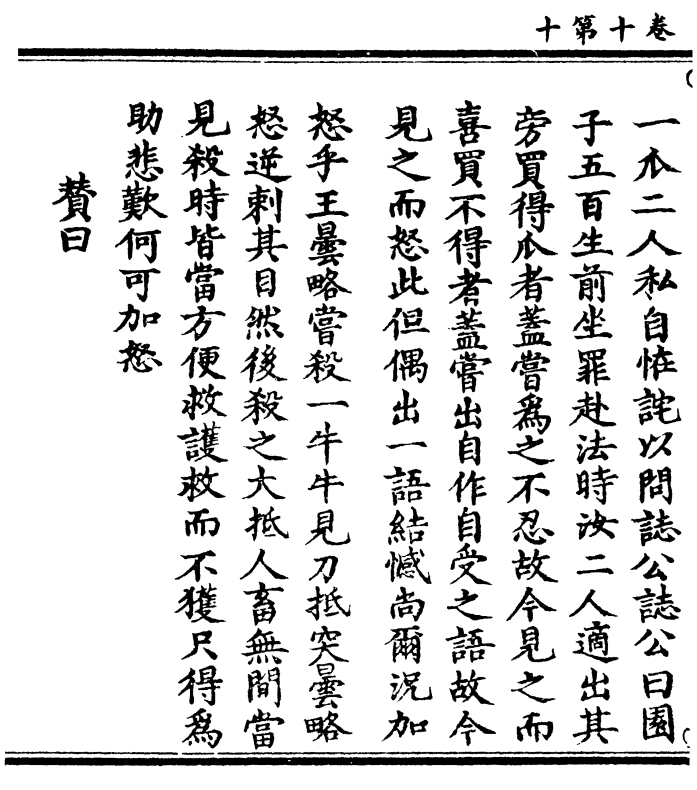 卷十第十
一瓜二人私自恠詫以問誌公誌公曰園
子五百生前坐罪赴法時汝二人適出其
旁買得瓜者蓋嘗爲之不忍故今見之而
喜買不得者蓋嘗出自作自受之語故今
見之而怒此但偶出一語結憾尚爾況加
怒乎王曇略嘗殺一牛牛見刀抵突曇略
怒逆刺其目然後殺之大抵人畜無間當
見殺時皆當方便救護救而不獲尺得爲
助悲歎何可加怒
贊曰